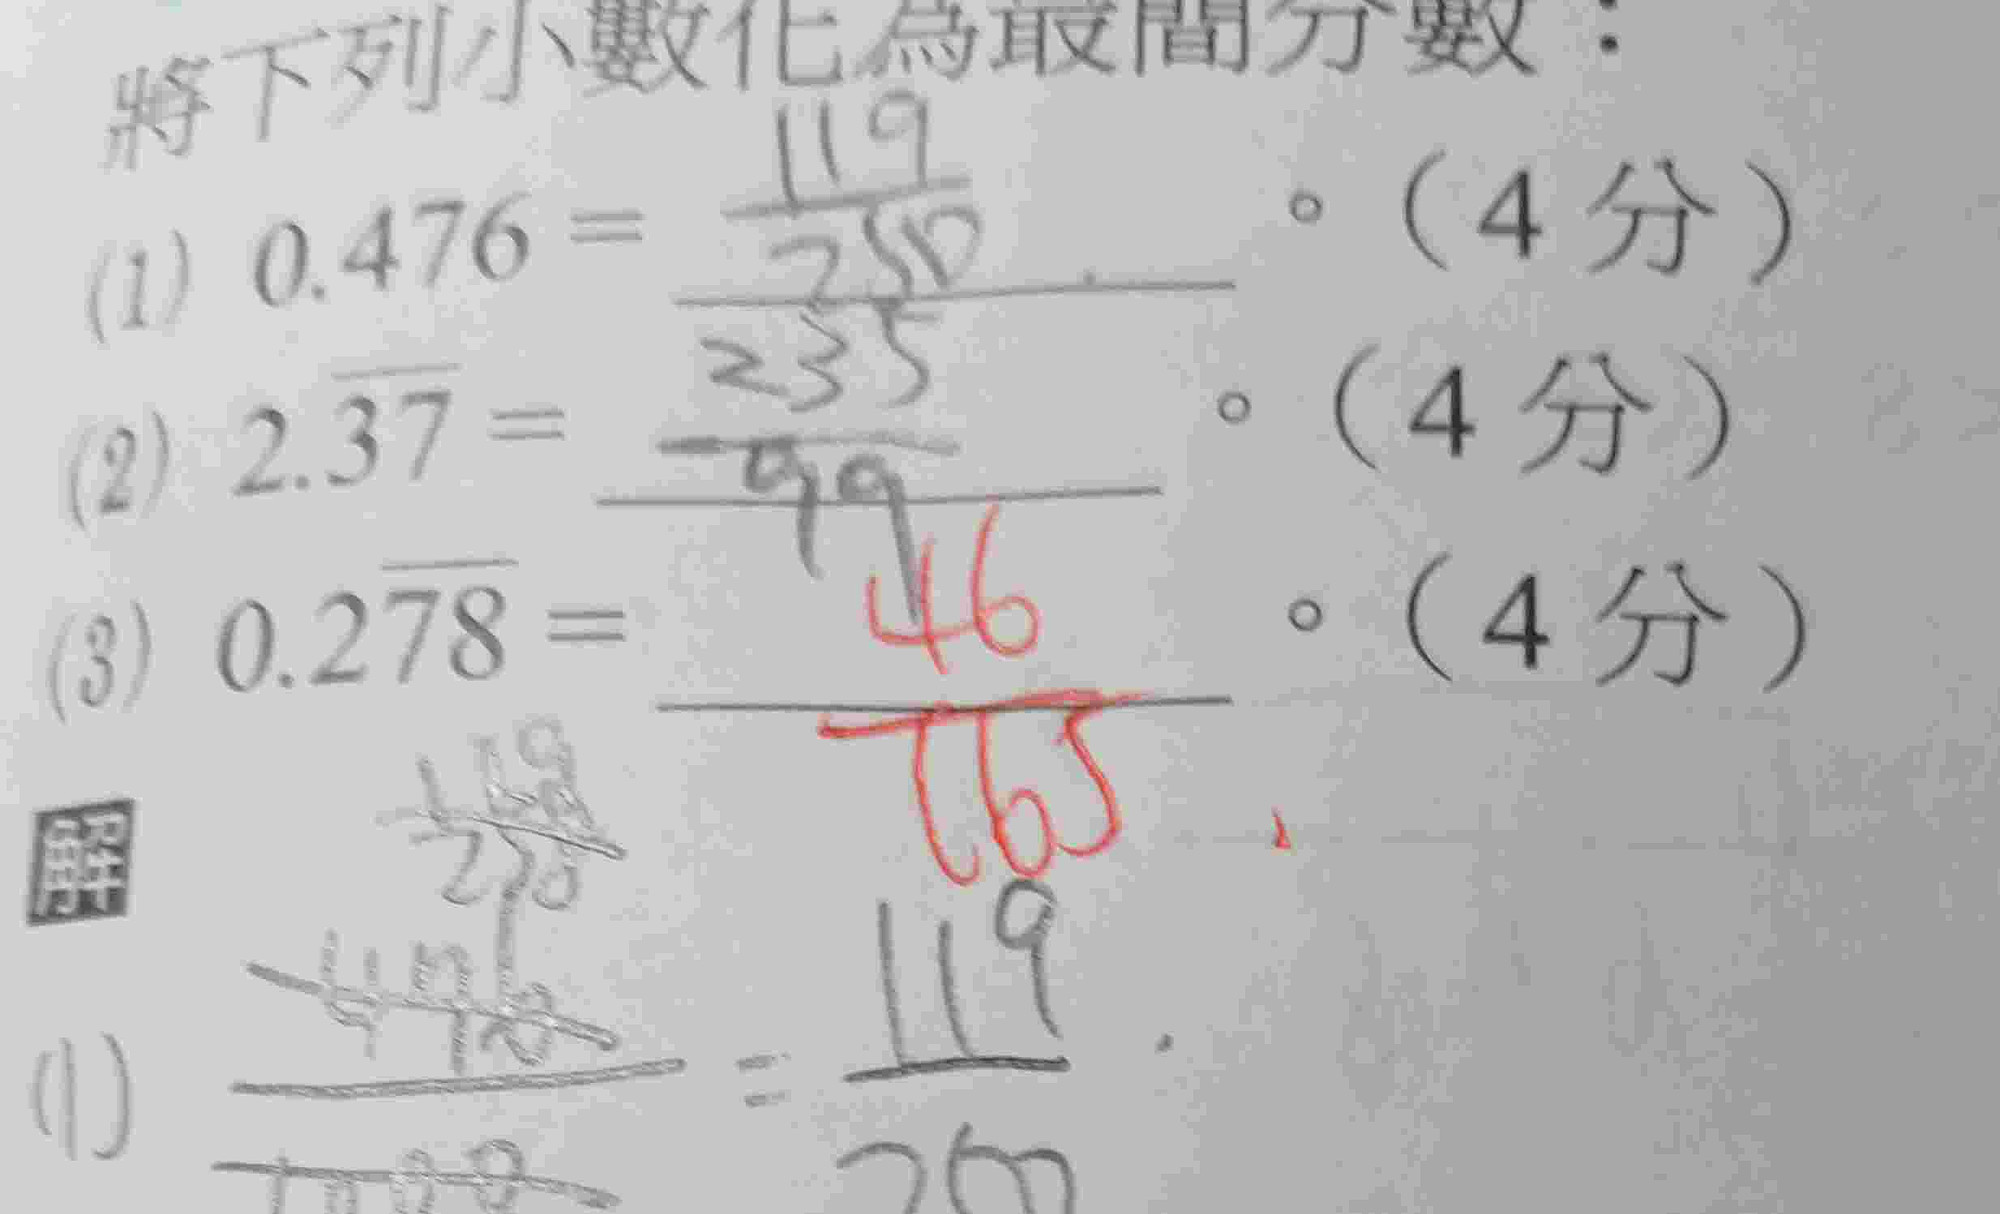 將下列小數化為最簡分數：
(1) 0.476 = 119/250 。（4分）
(2) 2.3̅7̅ = 235/99 。（4分）
(3) 0.27̅8̅ = 46/165 。（4分）
解
119
250
238
(1) 476/1000 = 119/250